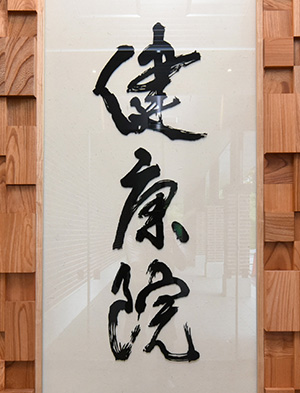 健康院